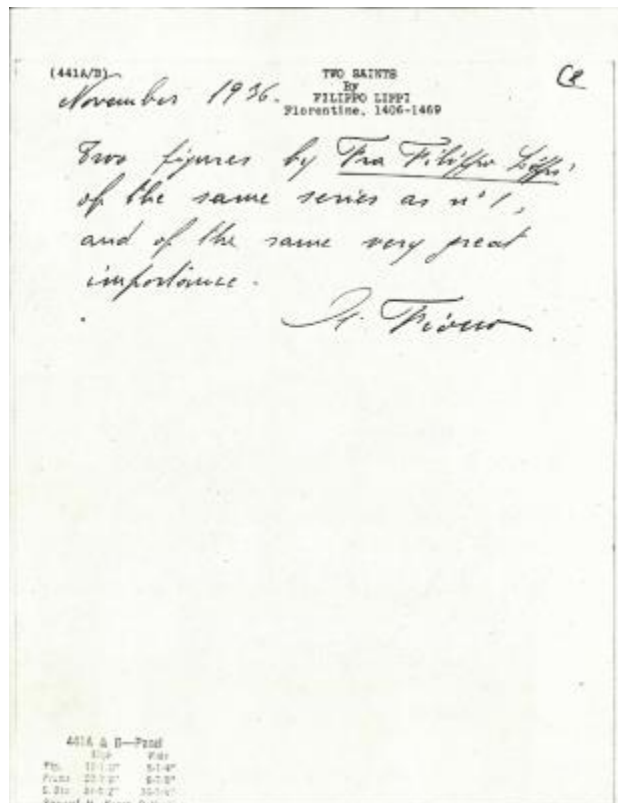 (441A/B)
TWO SAINTS
By
FILIPPO LIPPI
Florentine, 1406-1469
November 1936.
Two figures by Fra Filippo Lippi
of the same series as n° 1,
and of the same very great
importance.
441A & B—Panel
High Wide